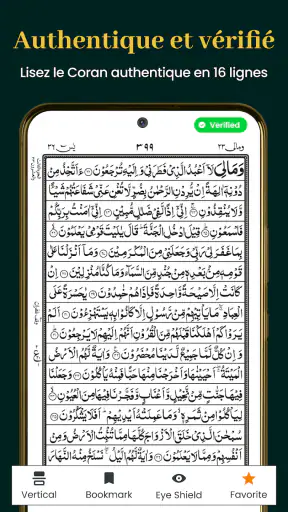 Authentique et vérifié
Lisez le Coran authentique en 16 lignes
Verified
يٰسٓ ٣٦
٣٩٩
ومالى ٢٣
وَمَالِيَ لَآ اَعْبُدُ الَّذِيْ فَطَرَنِيْ وَاِلَيْهِ تُرْجَعُوْنَ ءَاَتَّخِذُ مِنْ
دُوْنِهٖٓ اٰلِهَةً اِنْ يُّرِدْنِ الرَّحْمٰنُ بِضُرٍّ لَّا تُغْنِ عَنِّيْ شَفَاعَتُهُمْ شَيْئًا
وَّلَا يُنْقِذُوْنِ اِنِّيْٓ اِذًا لَّفِيْ ضَلٰلٍ مُّبِيْنٍ اِنِّيْٓ اٰمَنْتُ بِرَبِّكُمْ
فَاسْمَعُوْنِ قِيْلَ ادْخُلِ الْجَنَّةَ قَالَ يٰلَيْتَ قَوْمِيْ يَعْلَمُوْنَ
بِمَا غَفَرَ لِيْ رَبِّيْ وَجَعَلَنِيْ مِنَ الْمُكْرَمِيْنَ وَمَآ اَنْزَلْنَا عَلٰى
قَوْمِهٖ مِنْۢ بَعْدِهٖ مِنْ جُنْدٍ مِّنَ السَّمَآءِ وَمَا كُنَّا مُنْزِلِيْنَ اِنْ
كَانَتْ اِلَّا صَيْحَةً وَّاحِدَةً فَاِذَا هُمْ خٰمِدُوْنَ يٰحَسْرَةً عَلَى
الْعِبَادِ مَا يَاْتِيْهِمْ مِّنْ رَّسُوْلٍ اِلَّا كَانُوْا بِهٖ يَسْتَهْزِءُوْنَ اَلَمْ
يَرَوْا كَمْ اَهْلَكْنَا قَبْلَهُمْ مِّنَ الْقُرُوْنِ اَنَّهُمْ اِلَيْهِمْ لَا يَرْجِعُوْنَ
وَاِنْ كُلٌّ لَّمَّا جَمِيْعٌ لَّدَيْنَا مُحْضَرُوْنَ وَاٰيَةٌ لَّهُمُ الْاَرْضُ
الْمَيْتَةُ اَحْيَيْنٰهَا وَاَخْرَجْنَا مِنْهَا حَبًّا فَمِنْهُ يَاْكُلُوْنَ وَجَعَلْنَا
فِيْهَا جَنّٰتٍ مِّنْ نَّخِيْلٍ وَّاَعْنَابٍ وَّفَجَّرْنَا فِيْهَا مِنَ الْعُيُوْنِ
لِيَاْكُلُوْا مِنْ ثَمَرِهٖ وَمَا عَمِلَتْهُ اَيْدِيْهِمْ اَفَلَا يَشْكُرُوْنَ
سُبْحٰنَ الَّذِيْ خَلَقَ الْاَزْوَاجَ كُلَّهَا مِمَّا تُنْۢبِتُ الْاَرْضُ وَمِنْ
اَنْفُسِهِمْ وَمِمَّا لَا يَعْلَمُوْنَ وَاٰيَةٌ لَّهُمُ الَّيْلُ نَسْلَخُ مِنْهُ النَّهَارَ
Vertical
Bookmark
Eye Shield
Favorite